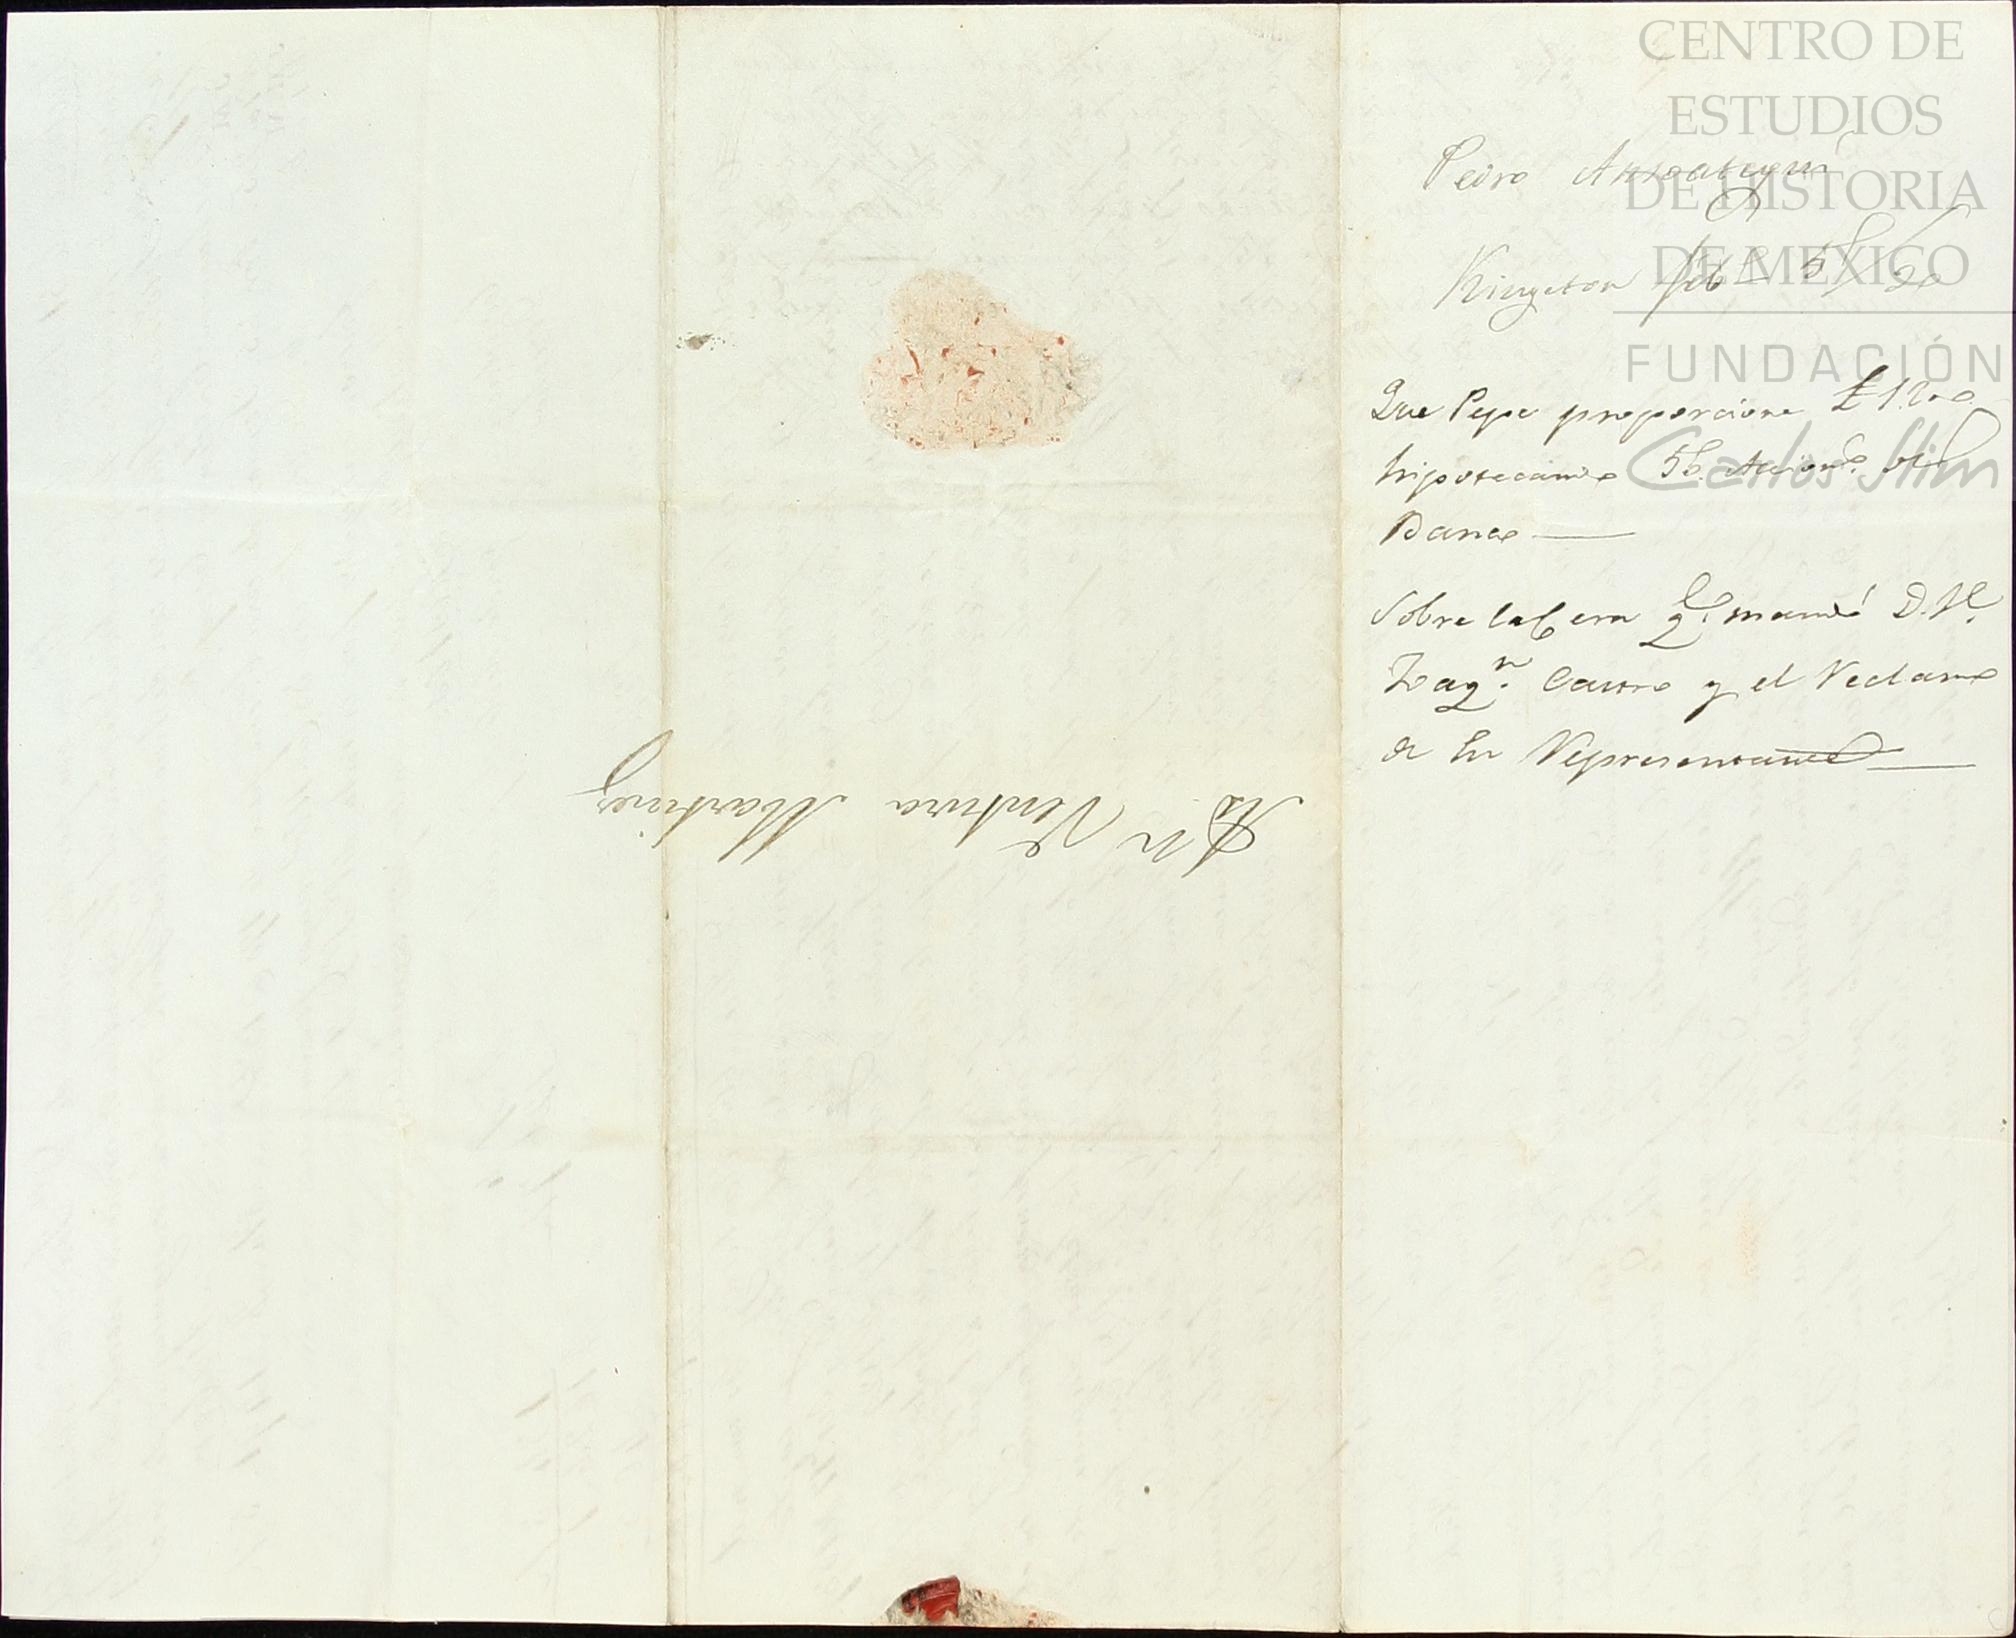 CENTRO DE
ESTUDIOS
DE HISTORIA
DE MÉXICO
FUNDACIÓN
Carlos Slim
Pedro Ansoategui
Kingston feb.º 5/20
Que Pepe proporcione £
hipotecando 56. Accion.s del
Banco —
Sobre la Cera q.e mandó D. J.e
Joaq.n Castro y el Reclamo
de su
A D.n Ventura Martinez